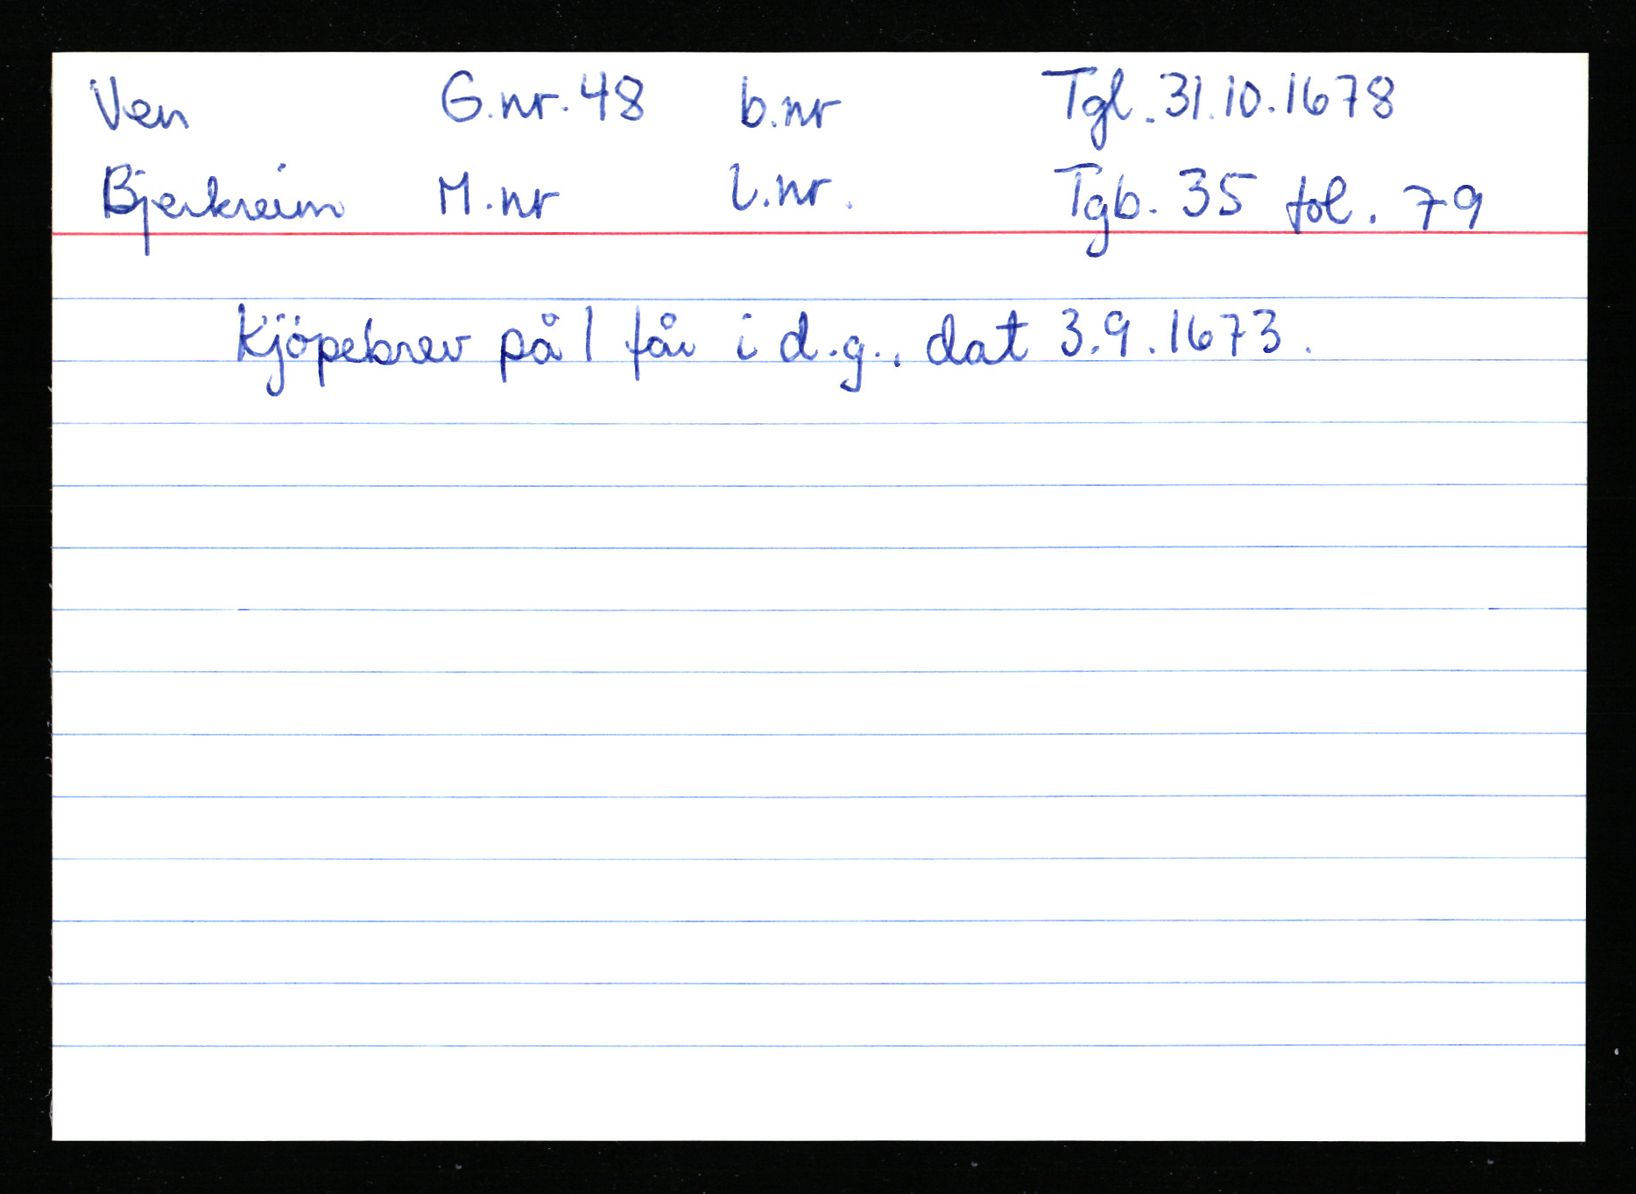 Ven G.nr. 48 b.nr Tgl. 31.10.1678
Bjerkreim M.nr l.nr. Tgb. 35 fol. 79
Kjöpebrev på 1 får i d.g., dat 3.9.1673.